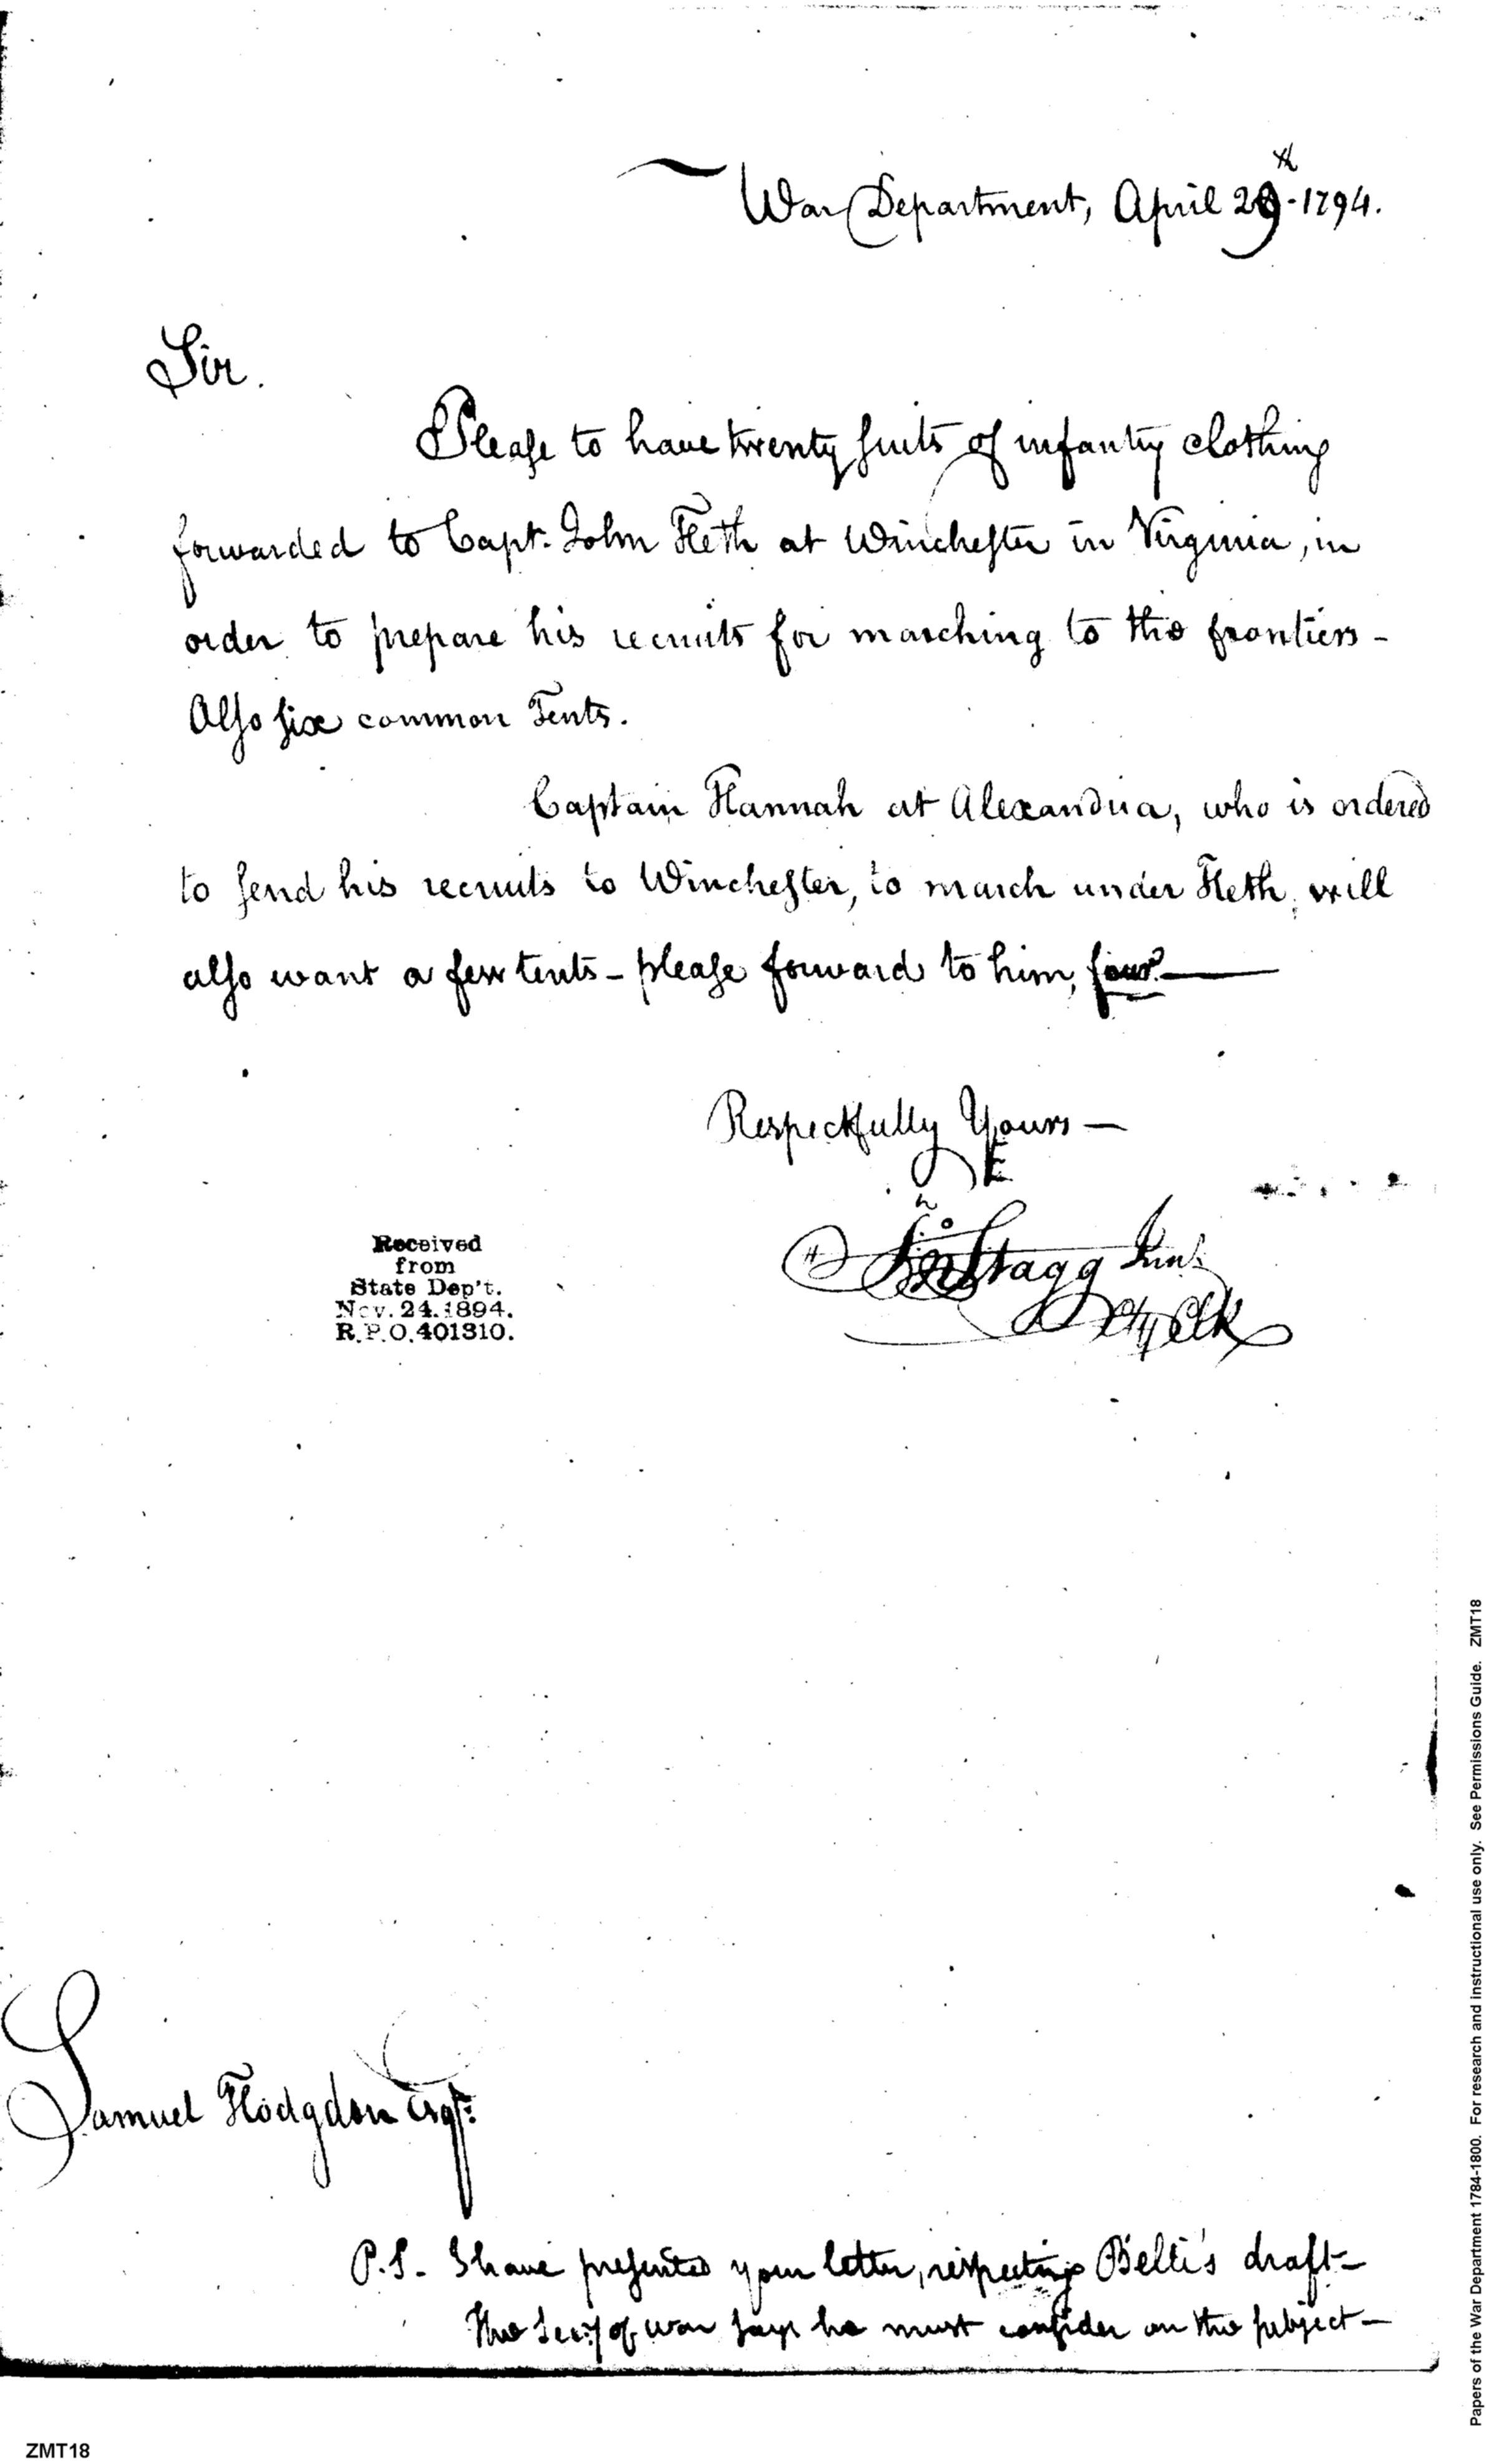 War Department, April 29th 1794.
Sir.
Please to have twenty suits of infantry clothing
forwarded to Capt. John Heth at Winchester in Virginia, in
order to prepare his recruits for marching to the frontiers -
Also six common Tents.
Captain Hannah at Alexandria, who is ordered
to send his recruits to Winchester, to march under Heth, will
also want a few tents - please forward to him, four.
Respectfully Yours —
Jno Stagg Junr
Chf Clk
Received
from
State Dep't.
Nov. 24. 1894.
R.P.O. 401310.
Samuel Hodgdon Esqr.
P.S. I have presented your letter, respecting Belli's draft -
The Secy of war says he must consider on the subject -
Papers of the War Department 1784-1800. For research and instructional use only. See Permissions Guide. ZMT18
ZMT18